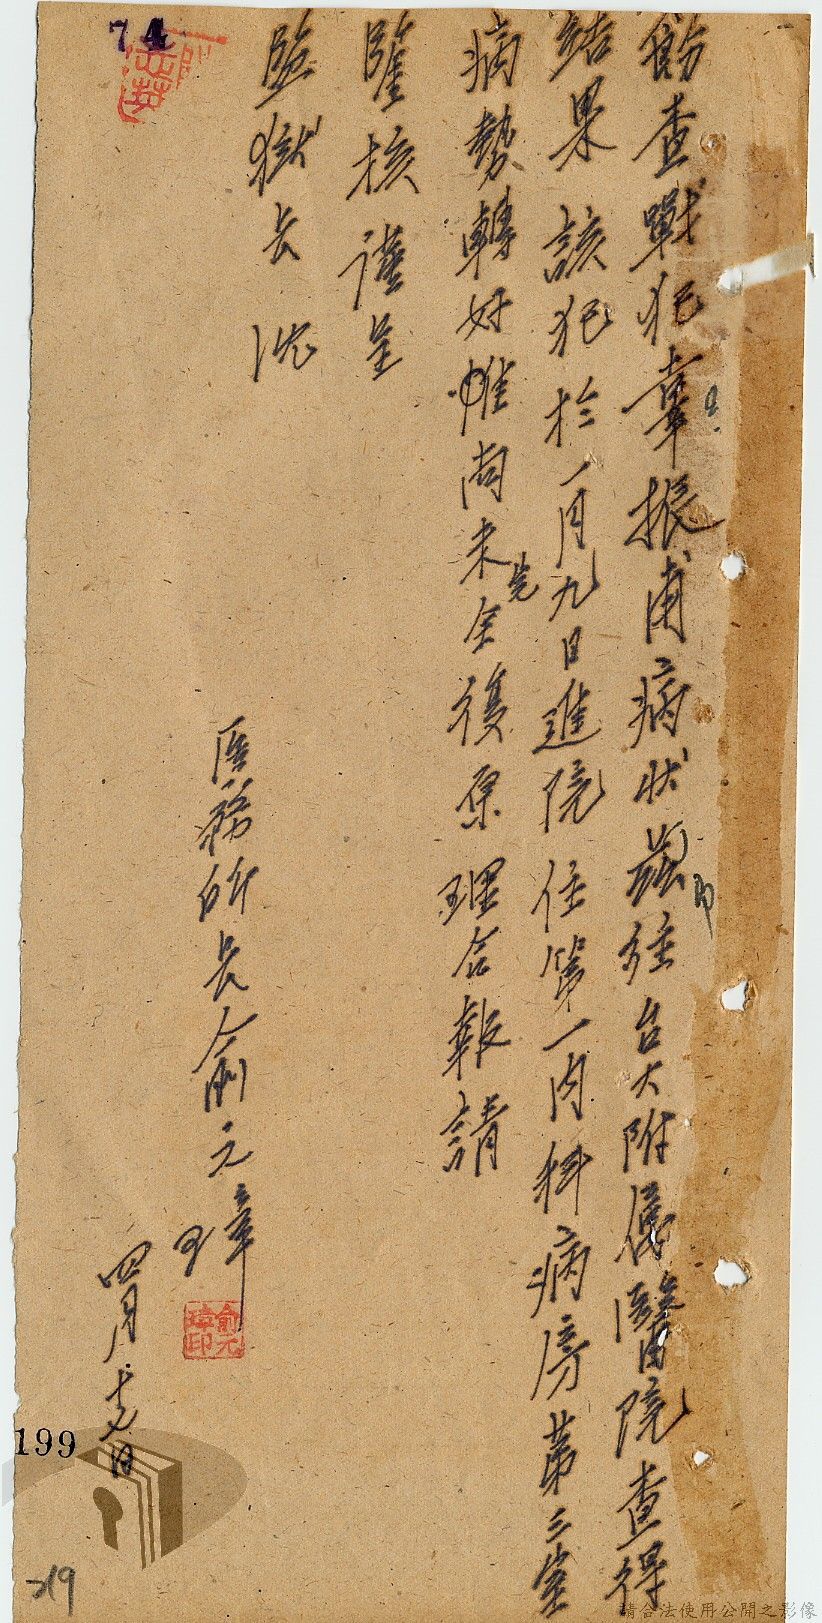 飭查戰犯辜振甫病狀茲經台大附属醫院查得
結果該犯於一月九日進院住第一內科病房第三室
病勢轉好惟尚未完全復原理合報請
鑒核謹呈
監獄長沈
医務所長俞元璋
俞元璋印
四月十七日
74
199
219
請合法使用公開之影像